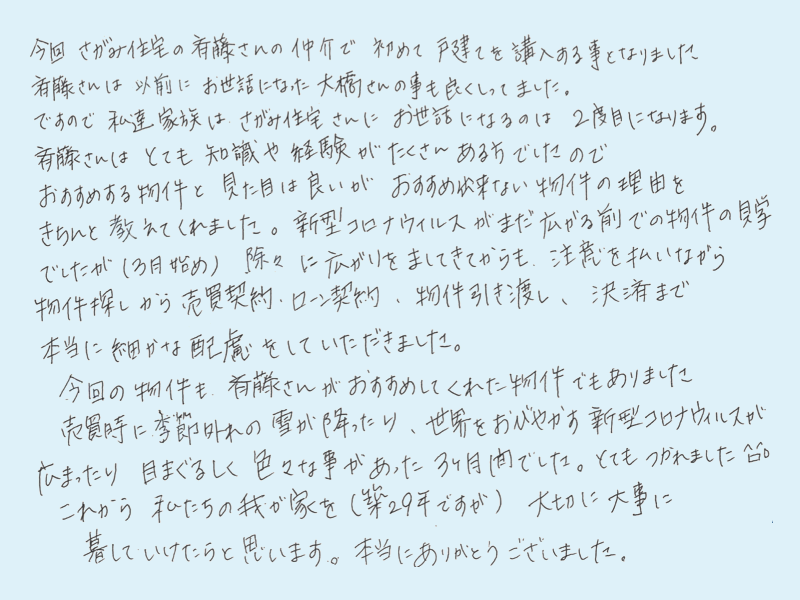 今回 さがみ住宅の斉藤さんの仲介で 初めて 戸建てを購入する事となりました
斉藤さんは 以前に お世話になった 大橋さんの事も良くしってました。
ですので 私達家族は さがみ住宅さんに お世話になるのは 2度目になります。
斉藤さんは とても 知識や経験がたくさんある方でしたので
おすすめする物件と 見た目は良いが おすすめ出来ない物件の理由を
きちんと教えてくれました。新型コロナウィルスがまだ広がる前での物件の見学
でしたが(3月始め) 除々に広がりをましてきてからも、注意を払いながら
物件探しから売買契約、ローン契約、物件引き渡し、決済まで
本当に細かな配慮をしていただきました。
今回の物件も 斉藤さんがおすすめしてくれた物件でもありました
売買時に季節外れの雪が降ったり、世界をおびやかす新型コロナウィルスが
広まったり 目まぐるしく 色々な事があった3ヶ月間でした。とてもつかれました
これから 私たちの我が家を(築29年ですが) 大切に大事に
暮していけたらと思います。本当にありがとうございました。